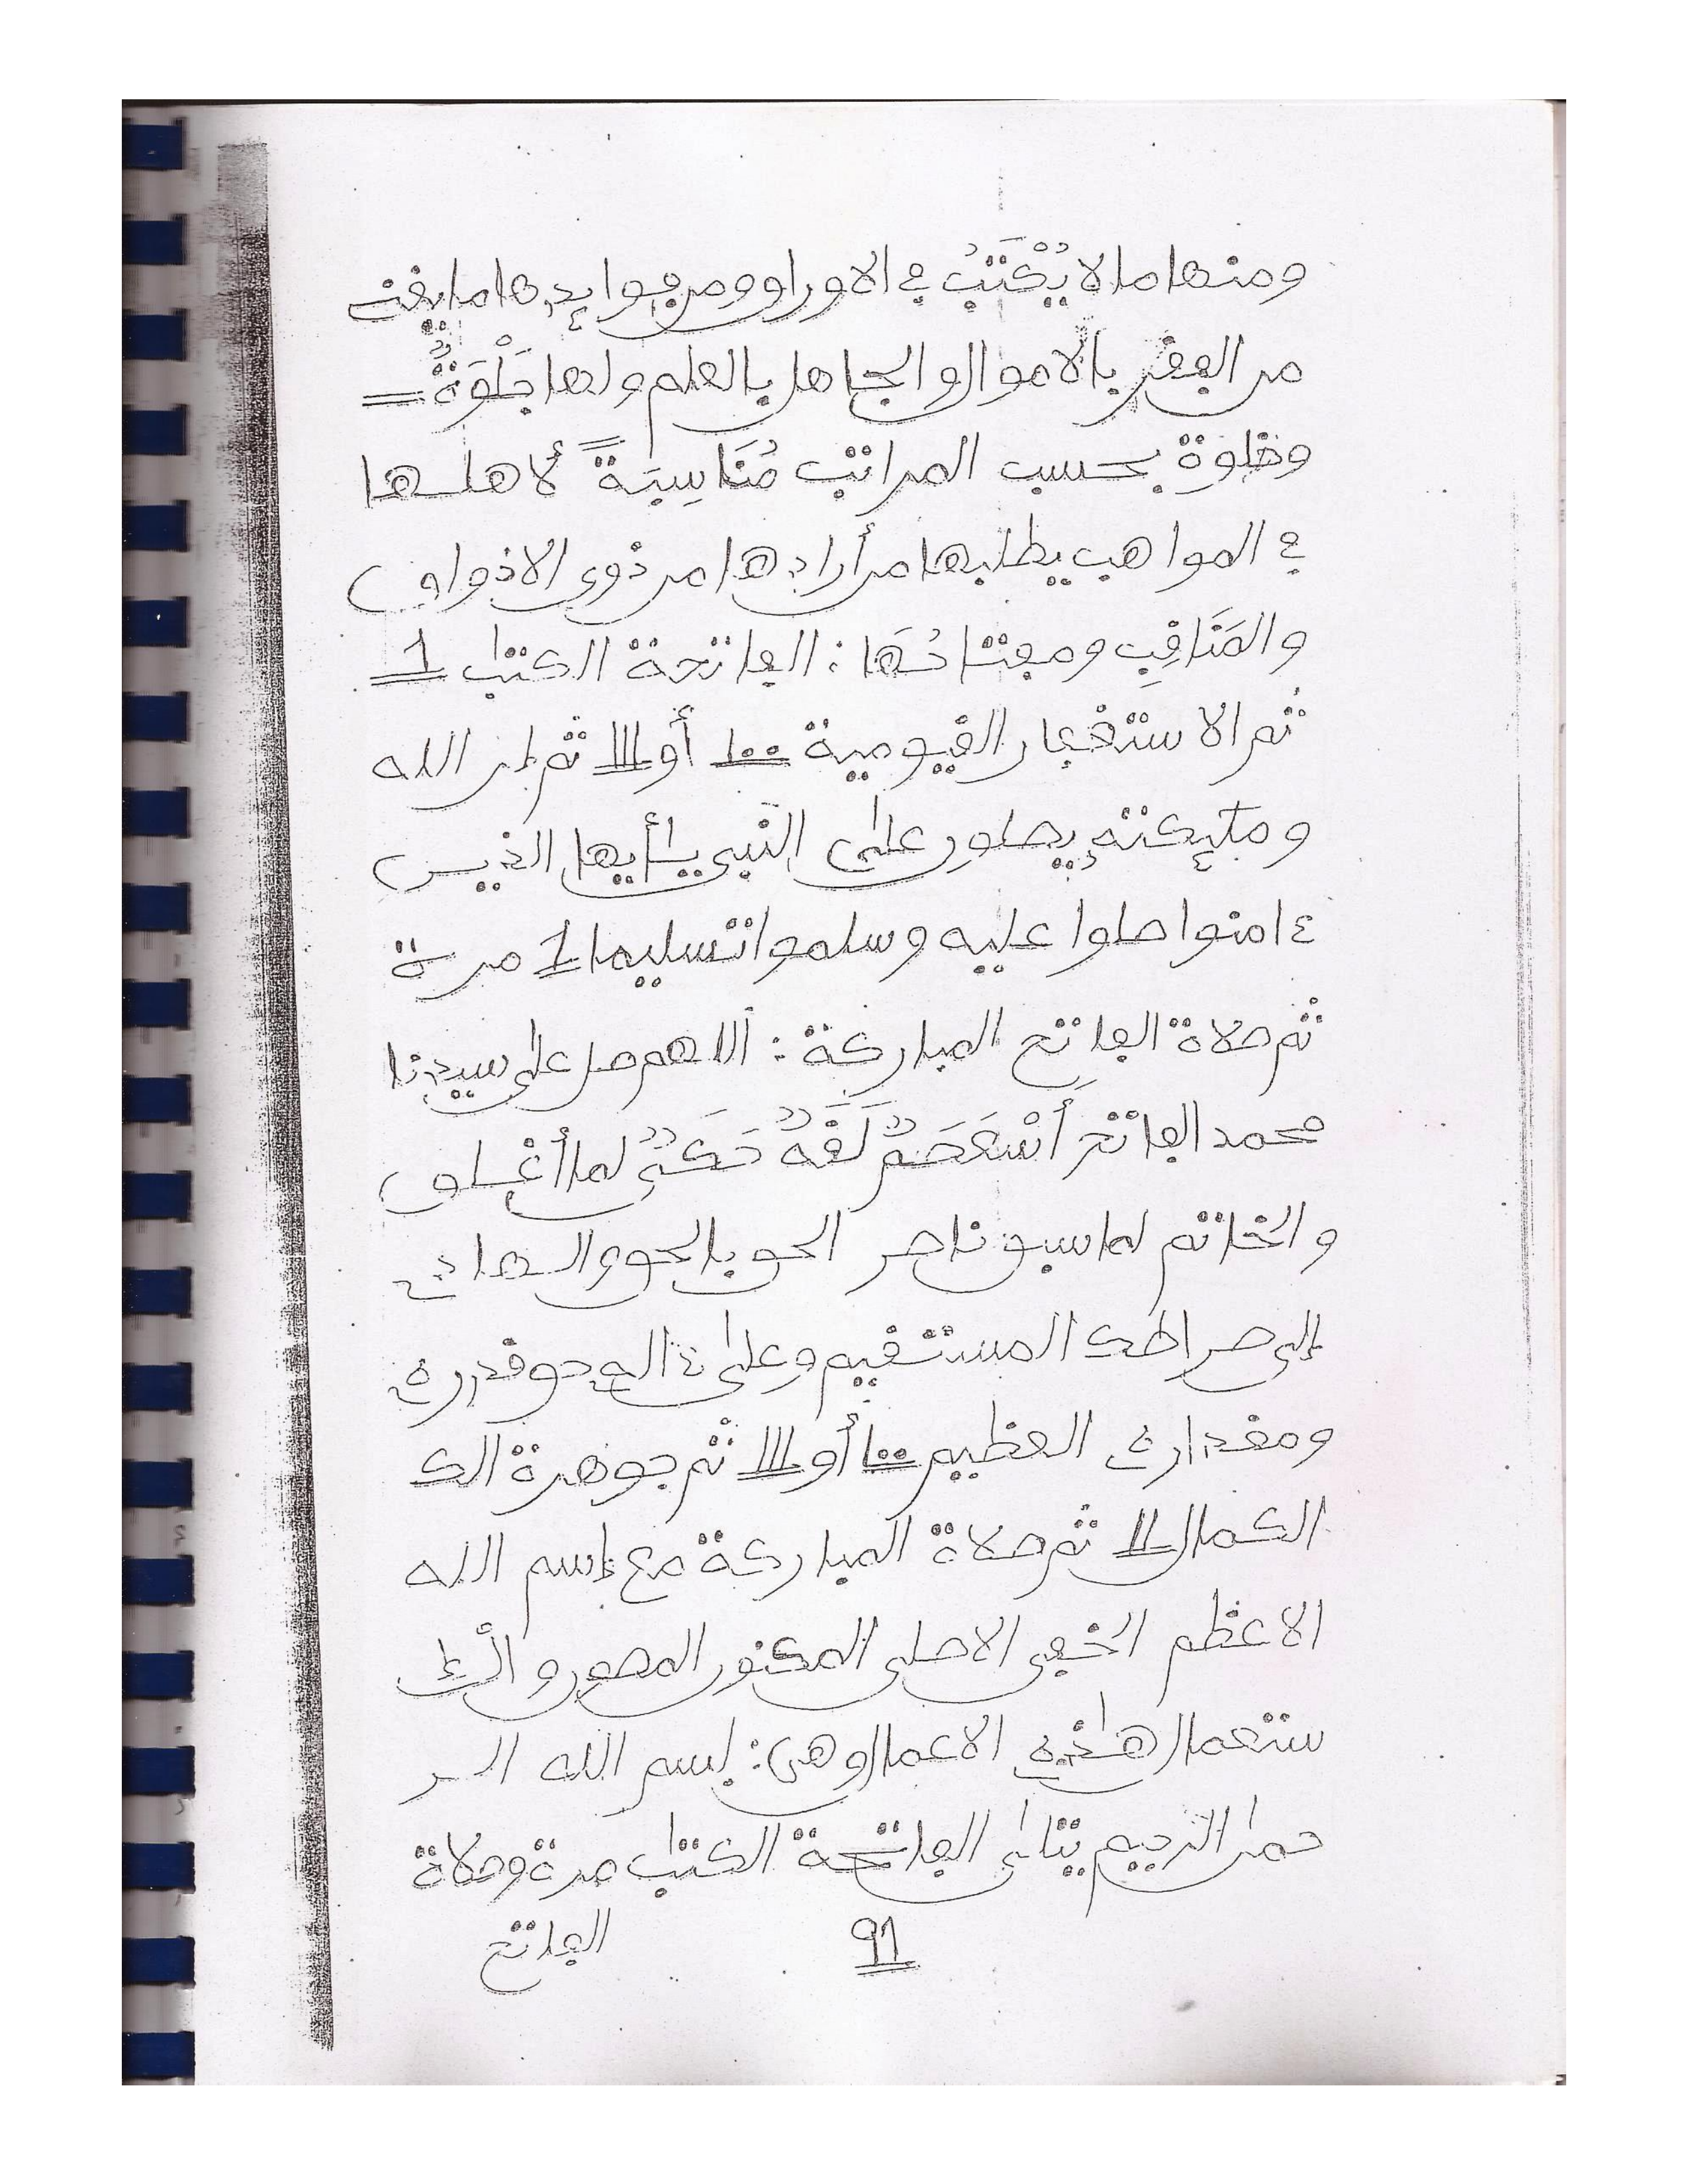 ومنها ما لا يُكْتَبُ في الاوراق ومن فوايدها ما يغن
من الفقر بالاموال والجاهل بالعلم ولها جَلْوَةٌ =
وخلوة بحسب المراتب مُنَاسِبَةً لأهلها
في المواهب يطلبها من أرادها من ذوي الاذواق
والمَنَاقِب ومفتاحُهَا : الفاتحة الكتٰب 1
ثم الاستغفار القيومية 100 أو 111 ثم إن الله
وملٰئكته يصلون على النبي يٰأيها الذين
ءامنوا صلوا عليه وسلموا تسليما 1 مرة
ثم صلاة الفاتح المباركة : اللاهم صل على سيدنا
محمد الفاتح لما أغلق
والخاتم لما سبق ناصر الحق بالحق والهادي
إلى صراطك المستقيم وعلى ءاله حق قدره
ومقداره العظيم 100 أو 111 ثم جوهرة الك
الكمال 11 ثم صلاة المباركة مع إسم الله
الاعظم الخفي الاصلي المكنون المصون والإ
ستعمال هٰذه الاعمال وهي : بسم الله الر
حمٰن الرحيم يتلى الفاتحة الكتٰب مرة وصلاة
الفاتح
91